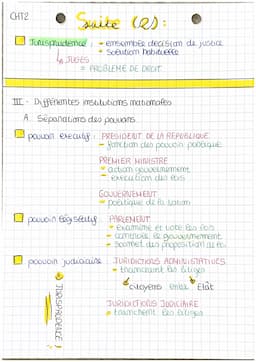 CHT2
Suite (2) :
Jurisprudence : - ensemble decision de justice
- solution habituelle
↳ JUGES
= PROBLÈME DE DROIT
III - Différentes institutions nationales
A. Séparations des pouvoirs.
pouvoir executif : PRESIDENT DE LA REPUBLIQUE
- fonction des pouvoir politique
PREMIER MINISTRE
- action gouvernement
- execution des lois
GOUVERNEMENT
- politique de la nation
pouvoir législatif : PARLEMENT
- examine et vote les lois
- controle le gouvernement
- soumet des proposition de loi
pouvoir judiciaire : JURIDICTIONS ADMINISTRATIVES
- tranchent les litiges
citoyens entre Etat
JURIDICTIONS JUDICIAIRE
- tranchent les litiges
JURISPRUDENCE !